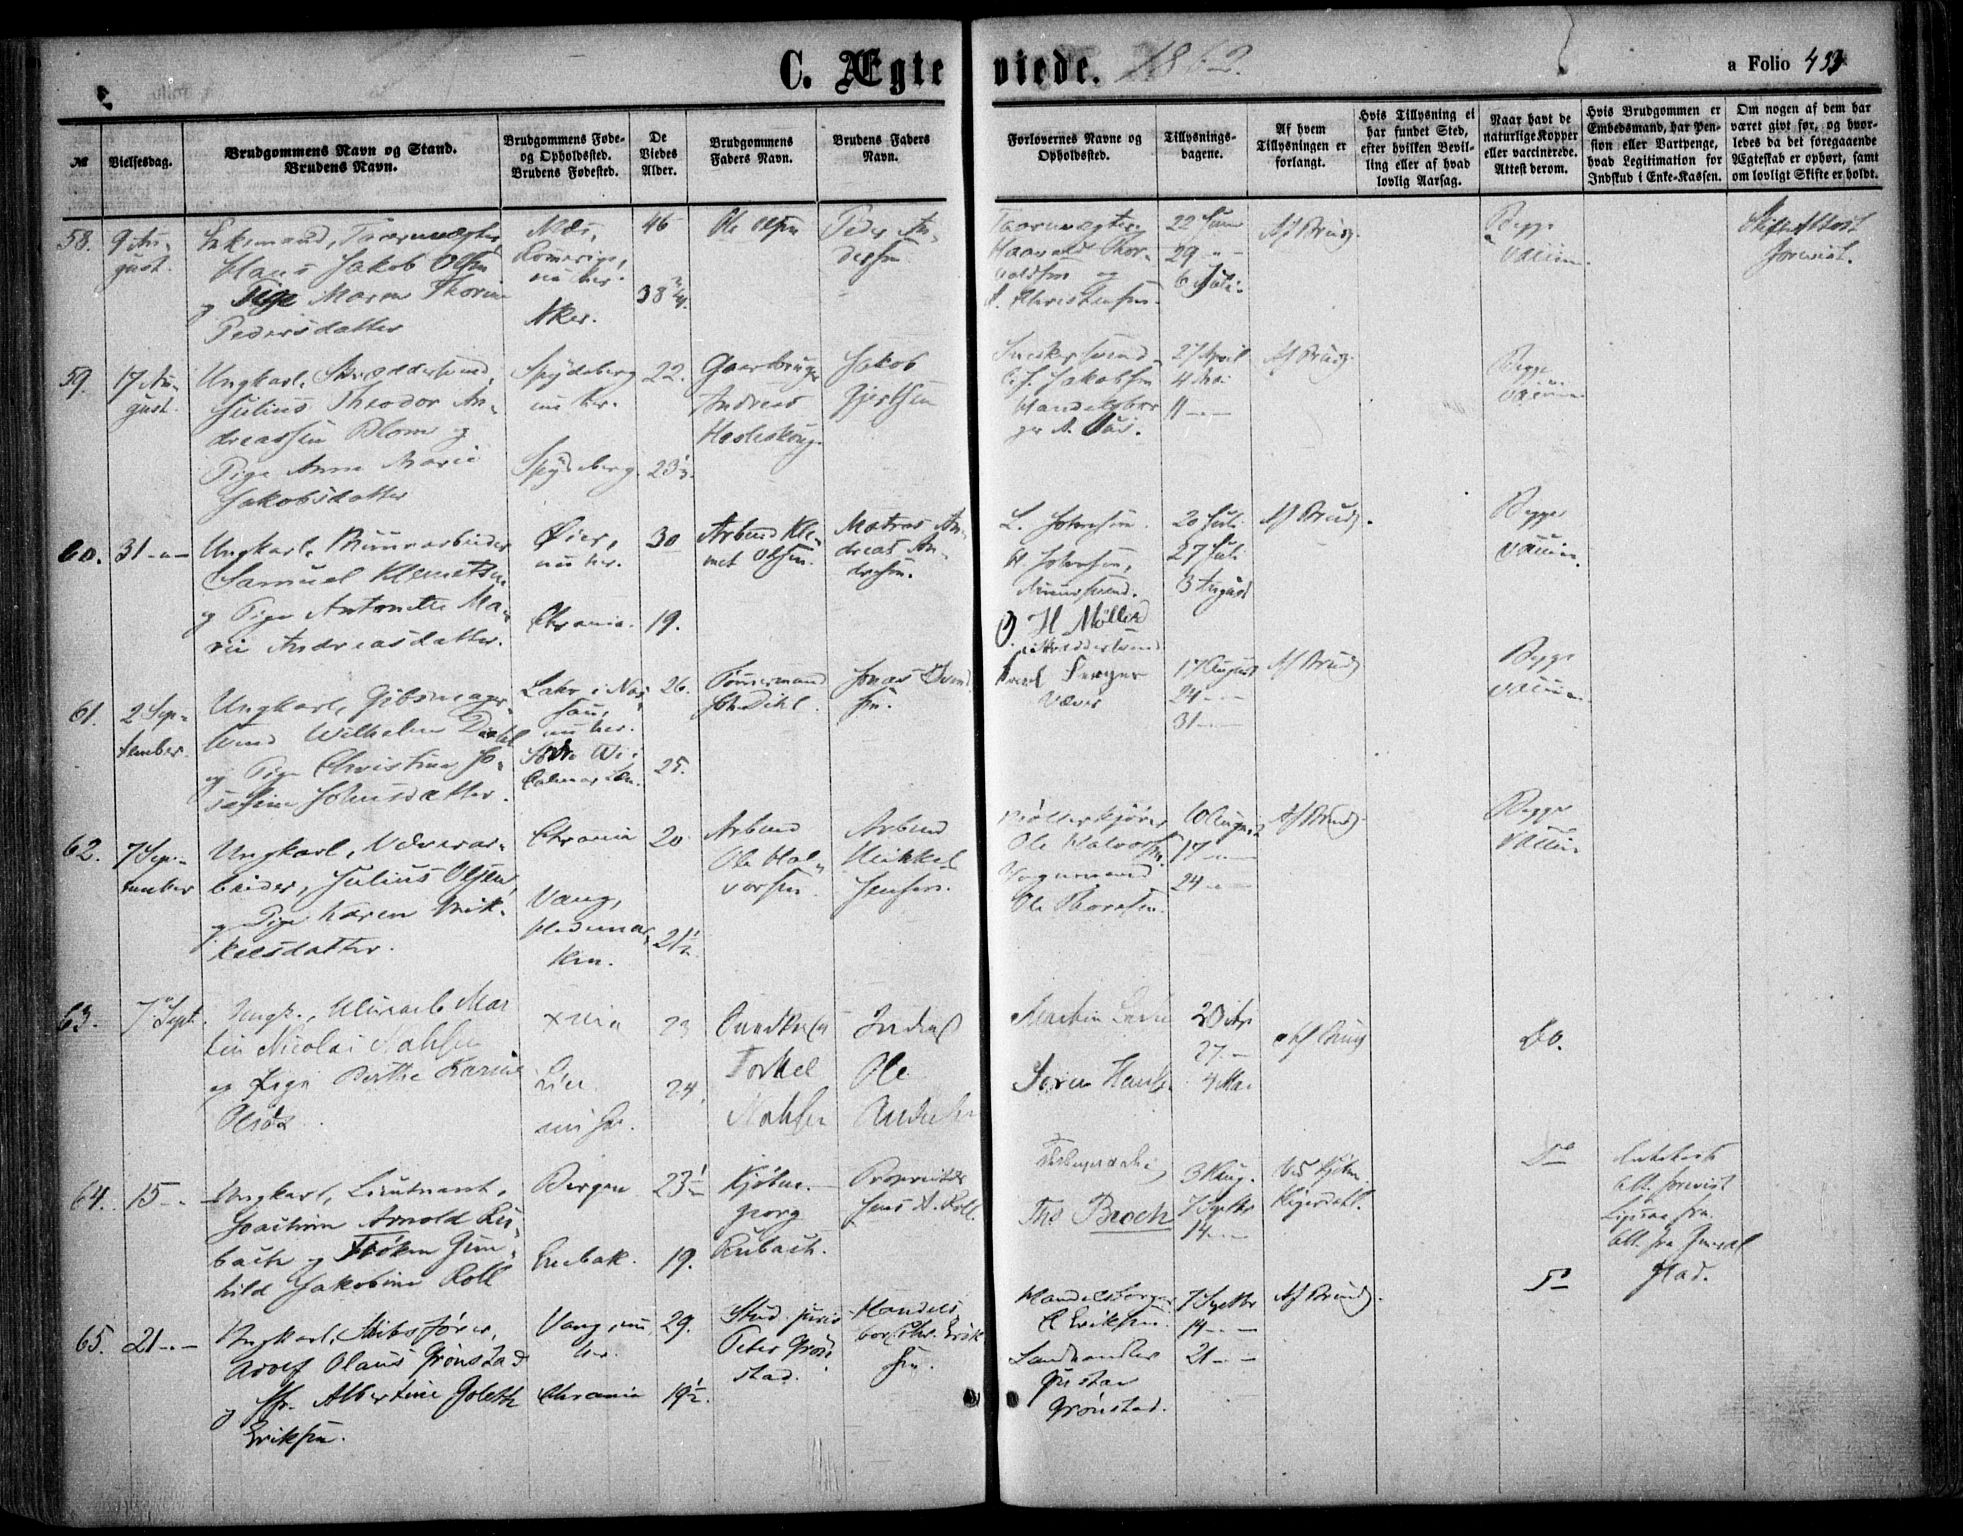 C. Ægteviede. 1862.
a Folio 433
№
Vielsesdag.
Brudgommens Navn og Stand.
Brudens Navn.
Brudgommens Føde-
og Opholdssted.
Brudens Fødested.
De
Viedes
Alder.
Brudgommens
Faders Navn.
Brudens Faders
Navn.
Forlovernes Navne og
Opholdssted.
Tillysnings-
dagene.
Af hvem
Tillysningen er
forlangt.
Hvis Tillysning ei
har fundet Sted,
efter hvilken Bevil-
ling eller af hvad
lovlig Aarsag.
Naar havt de
naturlige Kopper
eller vaccinerede.
Attest derom.
Hvis Brudgommen er
Embedsmand, har Pen-
sion eller Vartpenge,
hvad Legitimation for
Indskud i Enke-Kassen.
Om nogen af dem har
været gift før, og hvor-
ledes da det foregaaende
Ægteskab er ophørt, samt
om lovligt Skifte er holdt.
58.
9 Au-
gust.
Enkemand,
Hans Jakob Olsen
og Pige Maren Thorine
Pedersdatter
Næs,
Romerige,
nu her.
Aker.
46
38
Ole Olsen
Peder An-
dersen
Haavald Thor-
valdsen og
Christensen.
22 Juni
29 " -
6 Juli.
Af Brudg.
Begge
vaccin.
Skifte Attest
forevist.
59.
17 Au-
gust.
Ungkarl, Skræddersvend,
Julius Theodor An-
dreassen Blom og
Pige Anna Marie
Jakobsdatter
Spydeberg
nu her.
Spydeberg.
22.
23½.
Gaardbruger
Andreas
Jakob
Gjertsen
Snedkersvend
Jakobsen
Handelsbor-
ger A.
27 April
4 Mai
11 - -
Af Brudg.
Begge
vaccin.
60.
31 - " -
Ungkarl,
Samuel Klemetsen
og Pige Antonette Ma-
rie Andreasdatter.
Øier,
nu her.
Chrania.
30
19.
Arbmd Kle-
met Olsen.
Matros An-
dreas An-
dersen.
L. Johnsen.
H. Johnsen,
O. H Møller
Skræddersvend
20 Juli
27 Juli
3 August
Af Brudg.
Begge
vaccin.
61.
2 Sep-
tember.
Ungkarl, Gibsmager-
svend Wilhelm Diehl
og Pige Christine Jo-
sefine Johnsdatter.
Lahr i Nas-
sau,
nu her.
26.
25.
Tømmermand
Joh. Dihl.
Jonas Svend-
sen.
Væver
17 August
24 - -
31 - -
Af Brudg
Begge
vaccin.
62.
7 Sep-
tember
Ungkarl, Væverar-
beider, Julius Olsen
og Pige Karen Mik-
kelsdatter.
Chrania
Vang,
Hedemar-
ken.
20
21½
Arbmd
Ole Hal-
vorsen.
Arbmd
Mikkel
Jensen.
Møllerkjører
Ole Halvorsen
Vognmand
Ole Thoresen.
10 August
17 - -
24 - -
Af Brudg.
Begge
vaccin.
63.
7 Sept.
Ungk., Mar-
tin Nicolai
og Pige Berthe Karine
Olsdt
Xnia
Lier
nu her.
23
24.
Torkel
Ole
Martin
Søren Hansen
20 Apr
27 -
4 Mai
Af Brudg
Do.
64.
15 - -
Ungkarl, Lieutnant,
Joachim Arnold Ru-
bach og Frøken Gun-
hild Jakobine Roll
Bergen
Enebak.
23½
19.
Kjøbm.
Georg
Rubach.
Proprietær
Jens A. Roll.
Tho Broch
3 Aug.
7 Septbr
14 - -
Ved Kjøbm.
Do
Att. forevist
65.
21 - " -
Ungkarl, Skibsfører,
Adolf Olaus Grønstad
og Jfr. Albertine Golette
Eriksen.
Vang, nu
her.
Chrania
29.
19½.
Stud. juris
Peter Grøn-
stad.
Handels-
bor. Chr. Erik-
sen.
Handelsborger
C Eriksen.
Landhandler
Gustav
Grønstad.
7 Septbr
14 - -
21 - -
Af Brudg.
Do